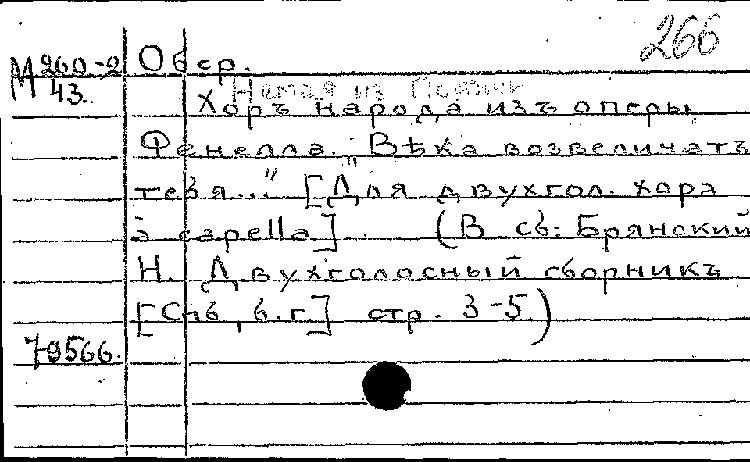 266
М 260-2
43.
Обер.
Немая из Портичи
Хоръ народа изъ оперы
Фенелла. "Вѣка возвеличатъ
тебя..." [Для двухгол. хора
à capella] (В сб: Брянский
Н. Двухголосный сборникъ
[Спб, б. г.] стр. 3-5.)
79566.